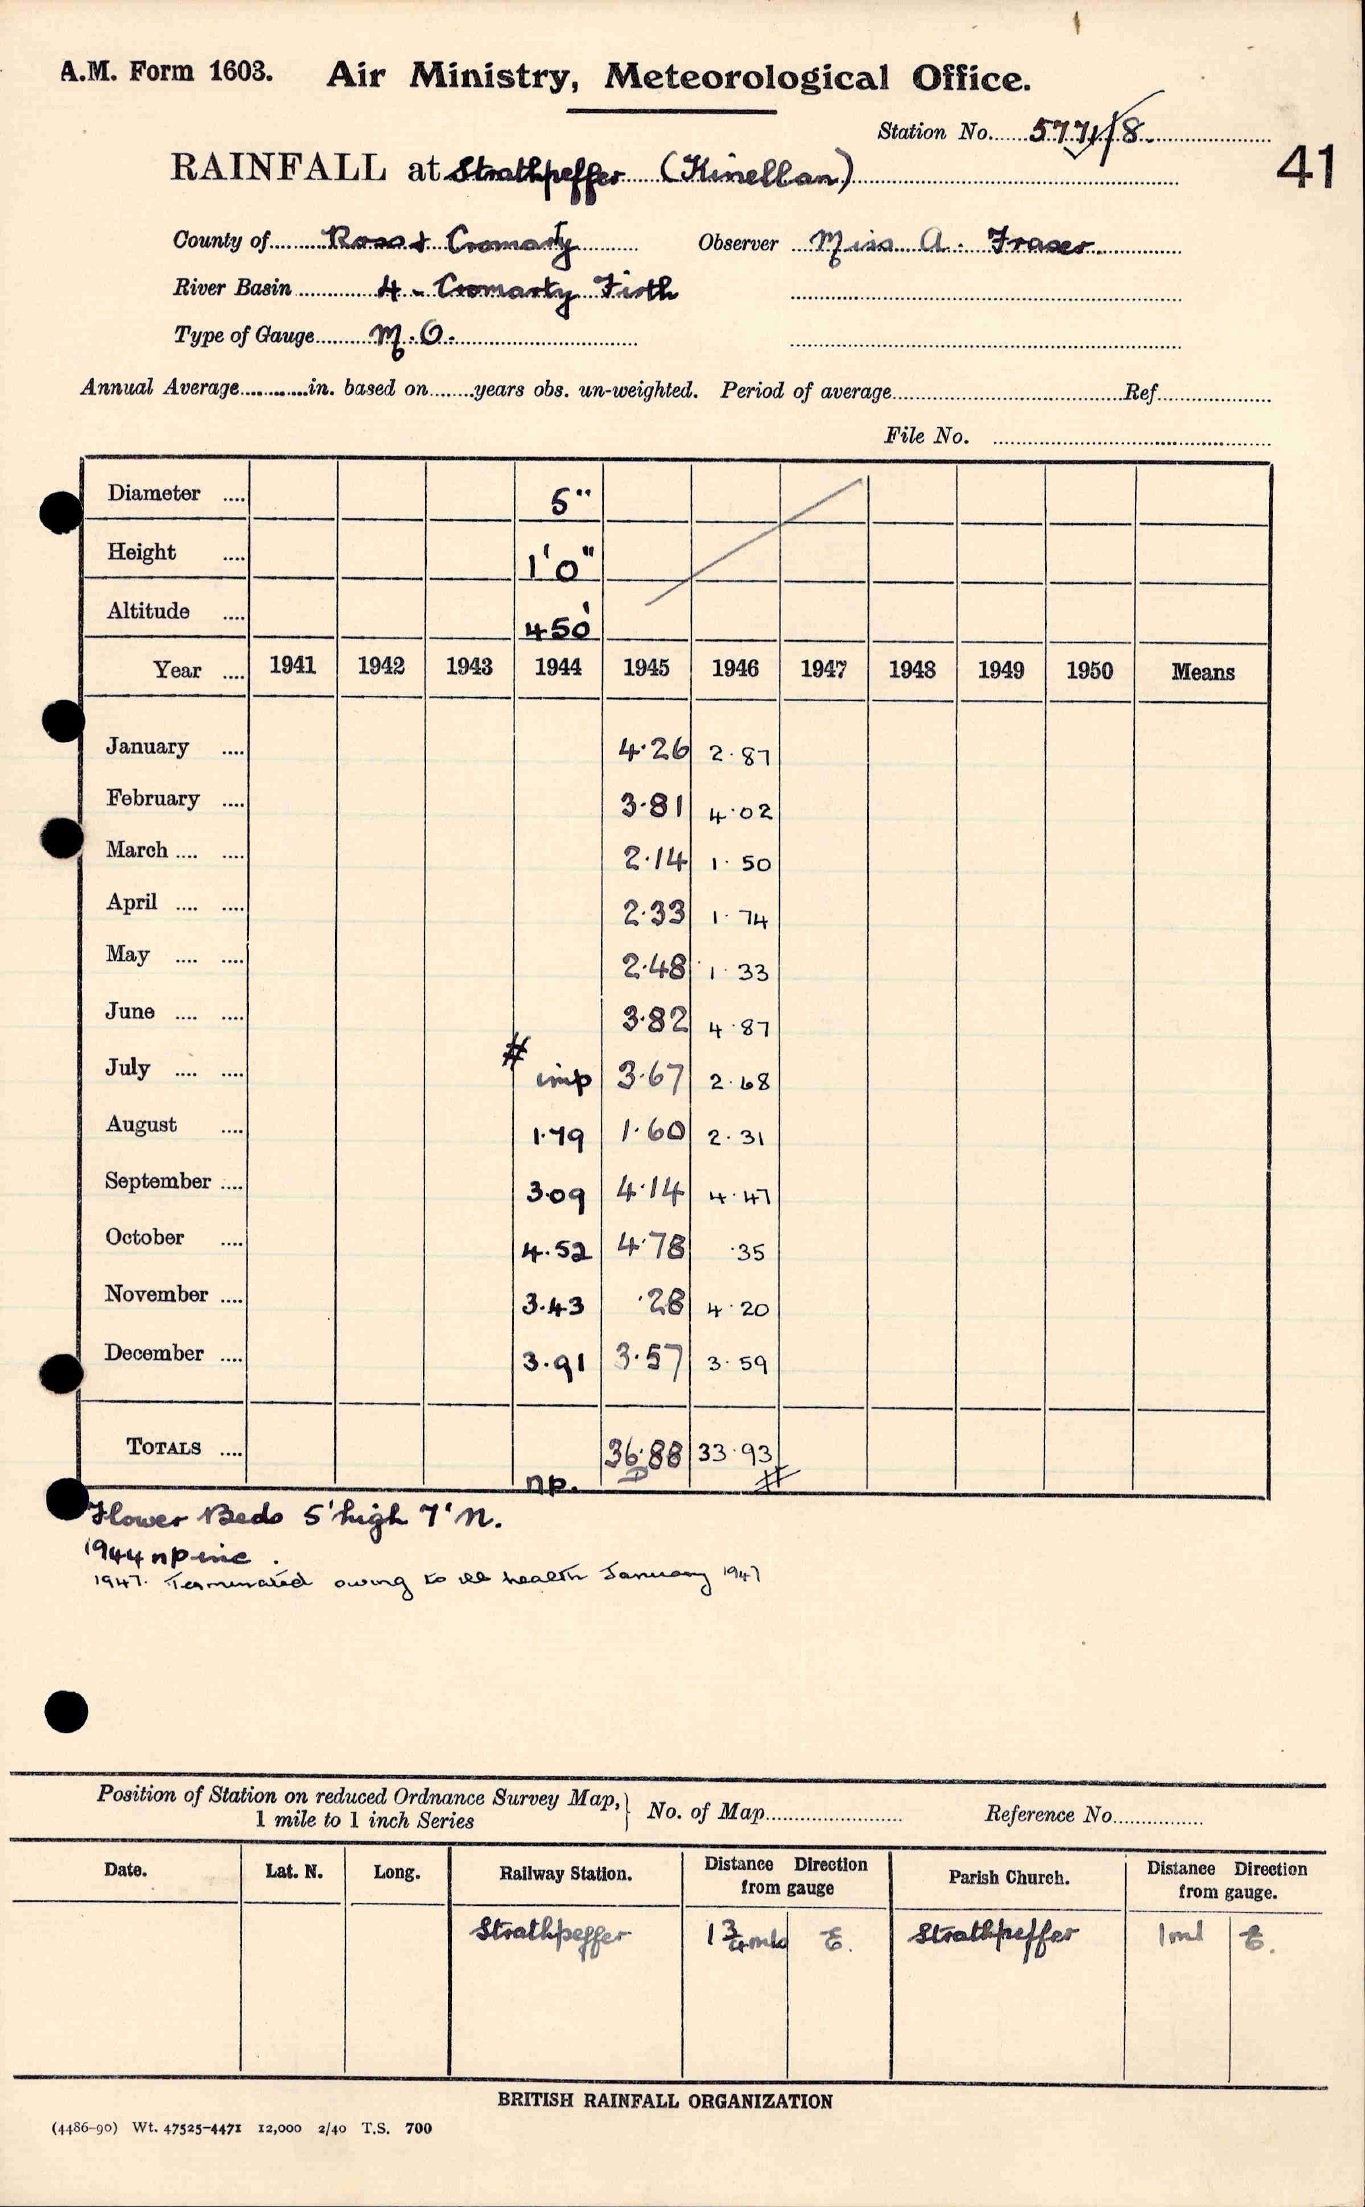 A.M. Form 1603. Air Ministry, Meteorological Office.
Station No. 5771/8
41
RAINFALL at Strathpeffer (Kinellan)
County of Ross & Cromarty Observer Miss A. Fraser.
River Basin 4 - Cromarty Firth
Type of Gauge M.O.
Annual Average in. based on years obs. un-weighted. Period of average Ref
File No.
Diameter 5"
Height 1'0"
Altitude 450'
Year 1941 1942 1943 1944 1945 1946 1947 1948 1949 1950 Means
January 4.26 2.87
February 3.81 4.02
March 2.14 1.50
April 2.33 1.74
May 2.48 1.33
June 3.82 4.87
July # imp 3.67 2.68
August 1.79 1.60 2.31
September 3.09 4.14 4.47
October 4.52 4.78 .35
November 3.43 .28 4.20
December 3.91 3.57 3.59
TOTALS np. 36.88 33.93 #
Flower Beds 5' high 7' N.
1944 np inc.
1947. Terminated owing to ill health January 1947
Position of Station on reduced Ordnance Survey Map, 1 mile to 1 inch Series } No. of Map Reference No.
Date. Lat. N. Long. Railway Station. Distance Direction from gauge Parish Church. Distance Direction from gauge.
Strathpeffer 1 3/4 mls E. Strathpeffer 1 ml E.
BRITISH RAINFALL ORGANIZATION
(4486-90) Wt. 47525-4471 12,000 2/40 T.S. 700